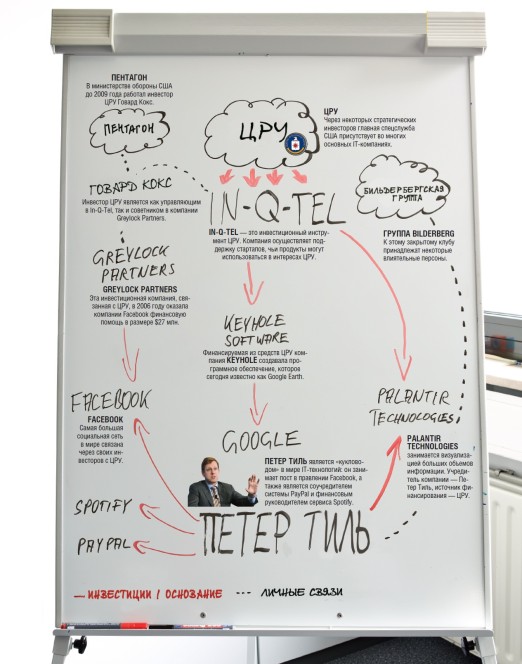 ПЕНТАГОН
В министерстве обороны США
до 2009 года работал инвестор
ЦРУ Говард Кокс.
ПЕНТАГОН
ЦРУ
ЦРУ
Через некоторых стратегических
инвесторов главная спецслужба
США присутствует во многих
основных IT-компаниях.
ГОВАРД КОКС
Инвестор ЦРУ является как управляющим
в In-Q-Tel, так и советником в компании
Greylock Partners.
IN-Q-TEL
IN-Q-TEL — это инвестиционный инстру-
мент ЦРУ. Компания осуществляет под-
держку стартапов, чьи продукты могут
использоваться в интересах ЦРУ.
БИЛЬДЕРБЕРГСКАЯ
ГРУППА
ГРУППА BILDERBERG
К этому закрытому клубу
принадлежат некоторые
влиятельные персоны.
GREYLOCK
PARTNERS
GREYLOCK PARTNERS
Эта инвестиционная компания, свя-
занная с ЦРУ, в 2006 году оказала
компании Facebook финансовую
помощь в размере $27 млн.
KEYHOLE
SOFTWARE
Финансируемая из средств ЦРУ ком-
пания KEYHOLE создавала про-
граммное обеспечение, которое
сегодня известно как Google Earth.
FACEBOOK
FACEBOOK
Самая большая
социальная сеть
в мире связана
через своих ин-
весторов с ЦРУ.
GOOGLE
PALANTIR
TECHNOLOGIES
PALANTIR
TECHNOLOGIES
занимается визуализа-
цией больших объемов
информации. Учреди-
тель компании — Пе-
тер Тиль, источник фи-
нансирования — ЦРУ.
ПЕТЕР ТИЛЬ является «куклово-
дом» в мире IT-технологий: он зани-
мает пост в правлении Facebook, а
также является соучредителем
системы PayPal и финансовым
руководителем сервиса Spotify.
SPOTIFY
PAYPAL
ПЕТЕР ТИЛЬ
— ИНВЕСТИЦИИ / ОСНОВАНИЕ --- ЛИЧНЫЕ СВЯЗИ